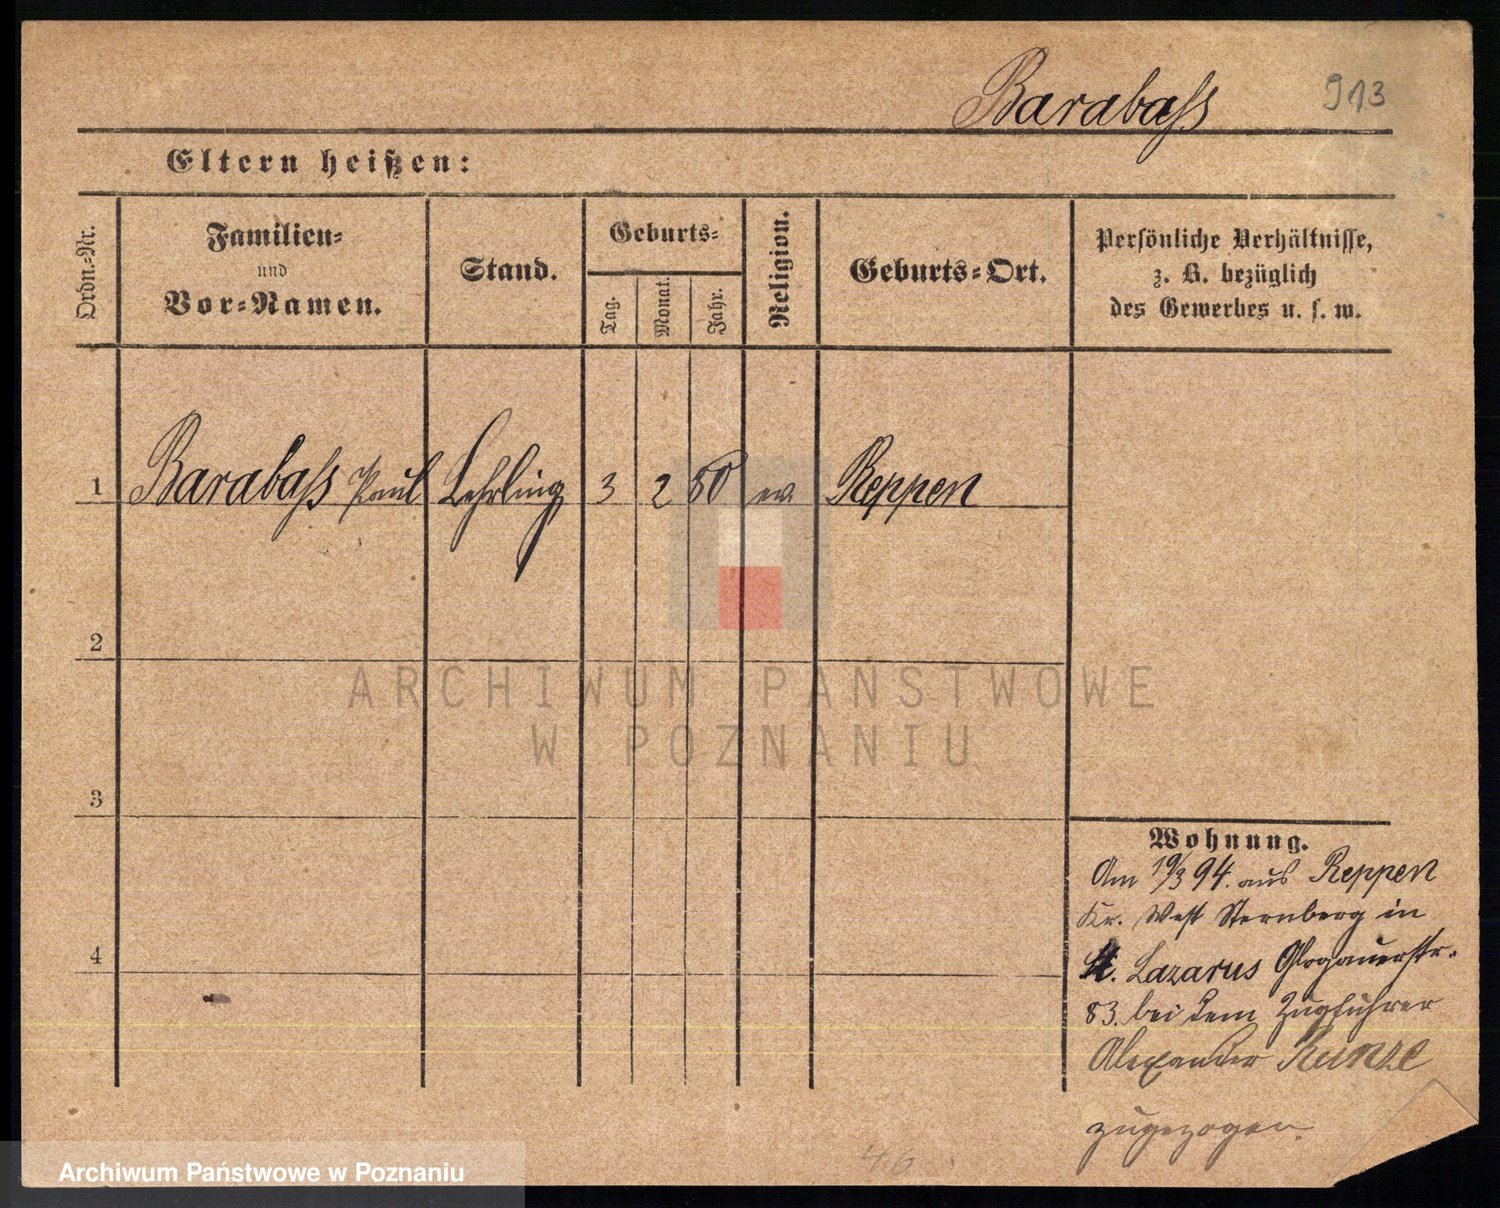 Barabaſs 913
Eltern heißen:
Ordn.-Nr.
Familien-
und
Vor-Namen.
Stand.
Geburts-
Tag.
Monat.
Jahr.
Religion.
Geburts-Ort.
Persönliche Verhältnisse,
z. B. bezüglich
des Gewerbes u. s. w.
1 Barabaſs Paul Lehrling 3 2 80 ev. Reppen
2
3
4
Wohnung.
Am 19/3 94. aus Reppen
Kr. West Sternberg in
St. Lazarus Glogauerstr.
83. bei dem Zugführer
Alexander Kunze
zugezogen.
46
ARCHIWUM PAŃSTWOWE
W POZNANIU
Archiwum Państwowe w Poznaniu